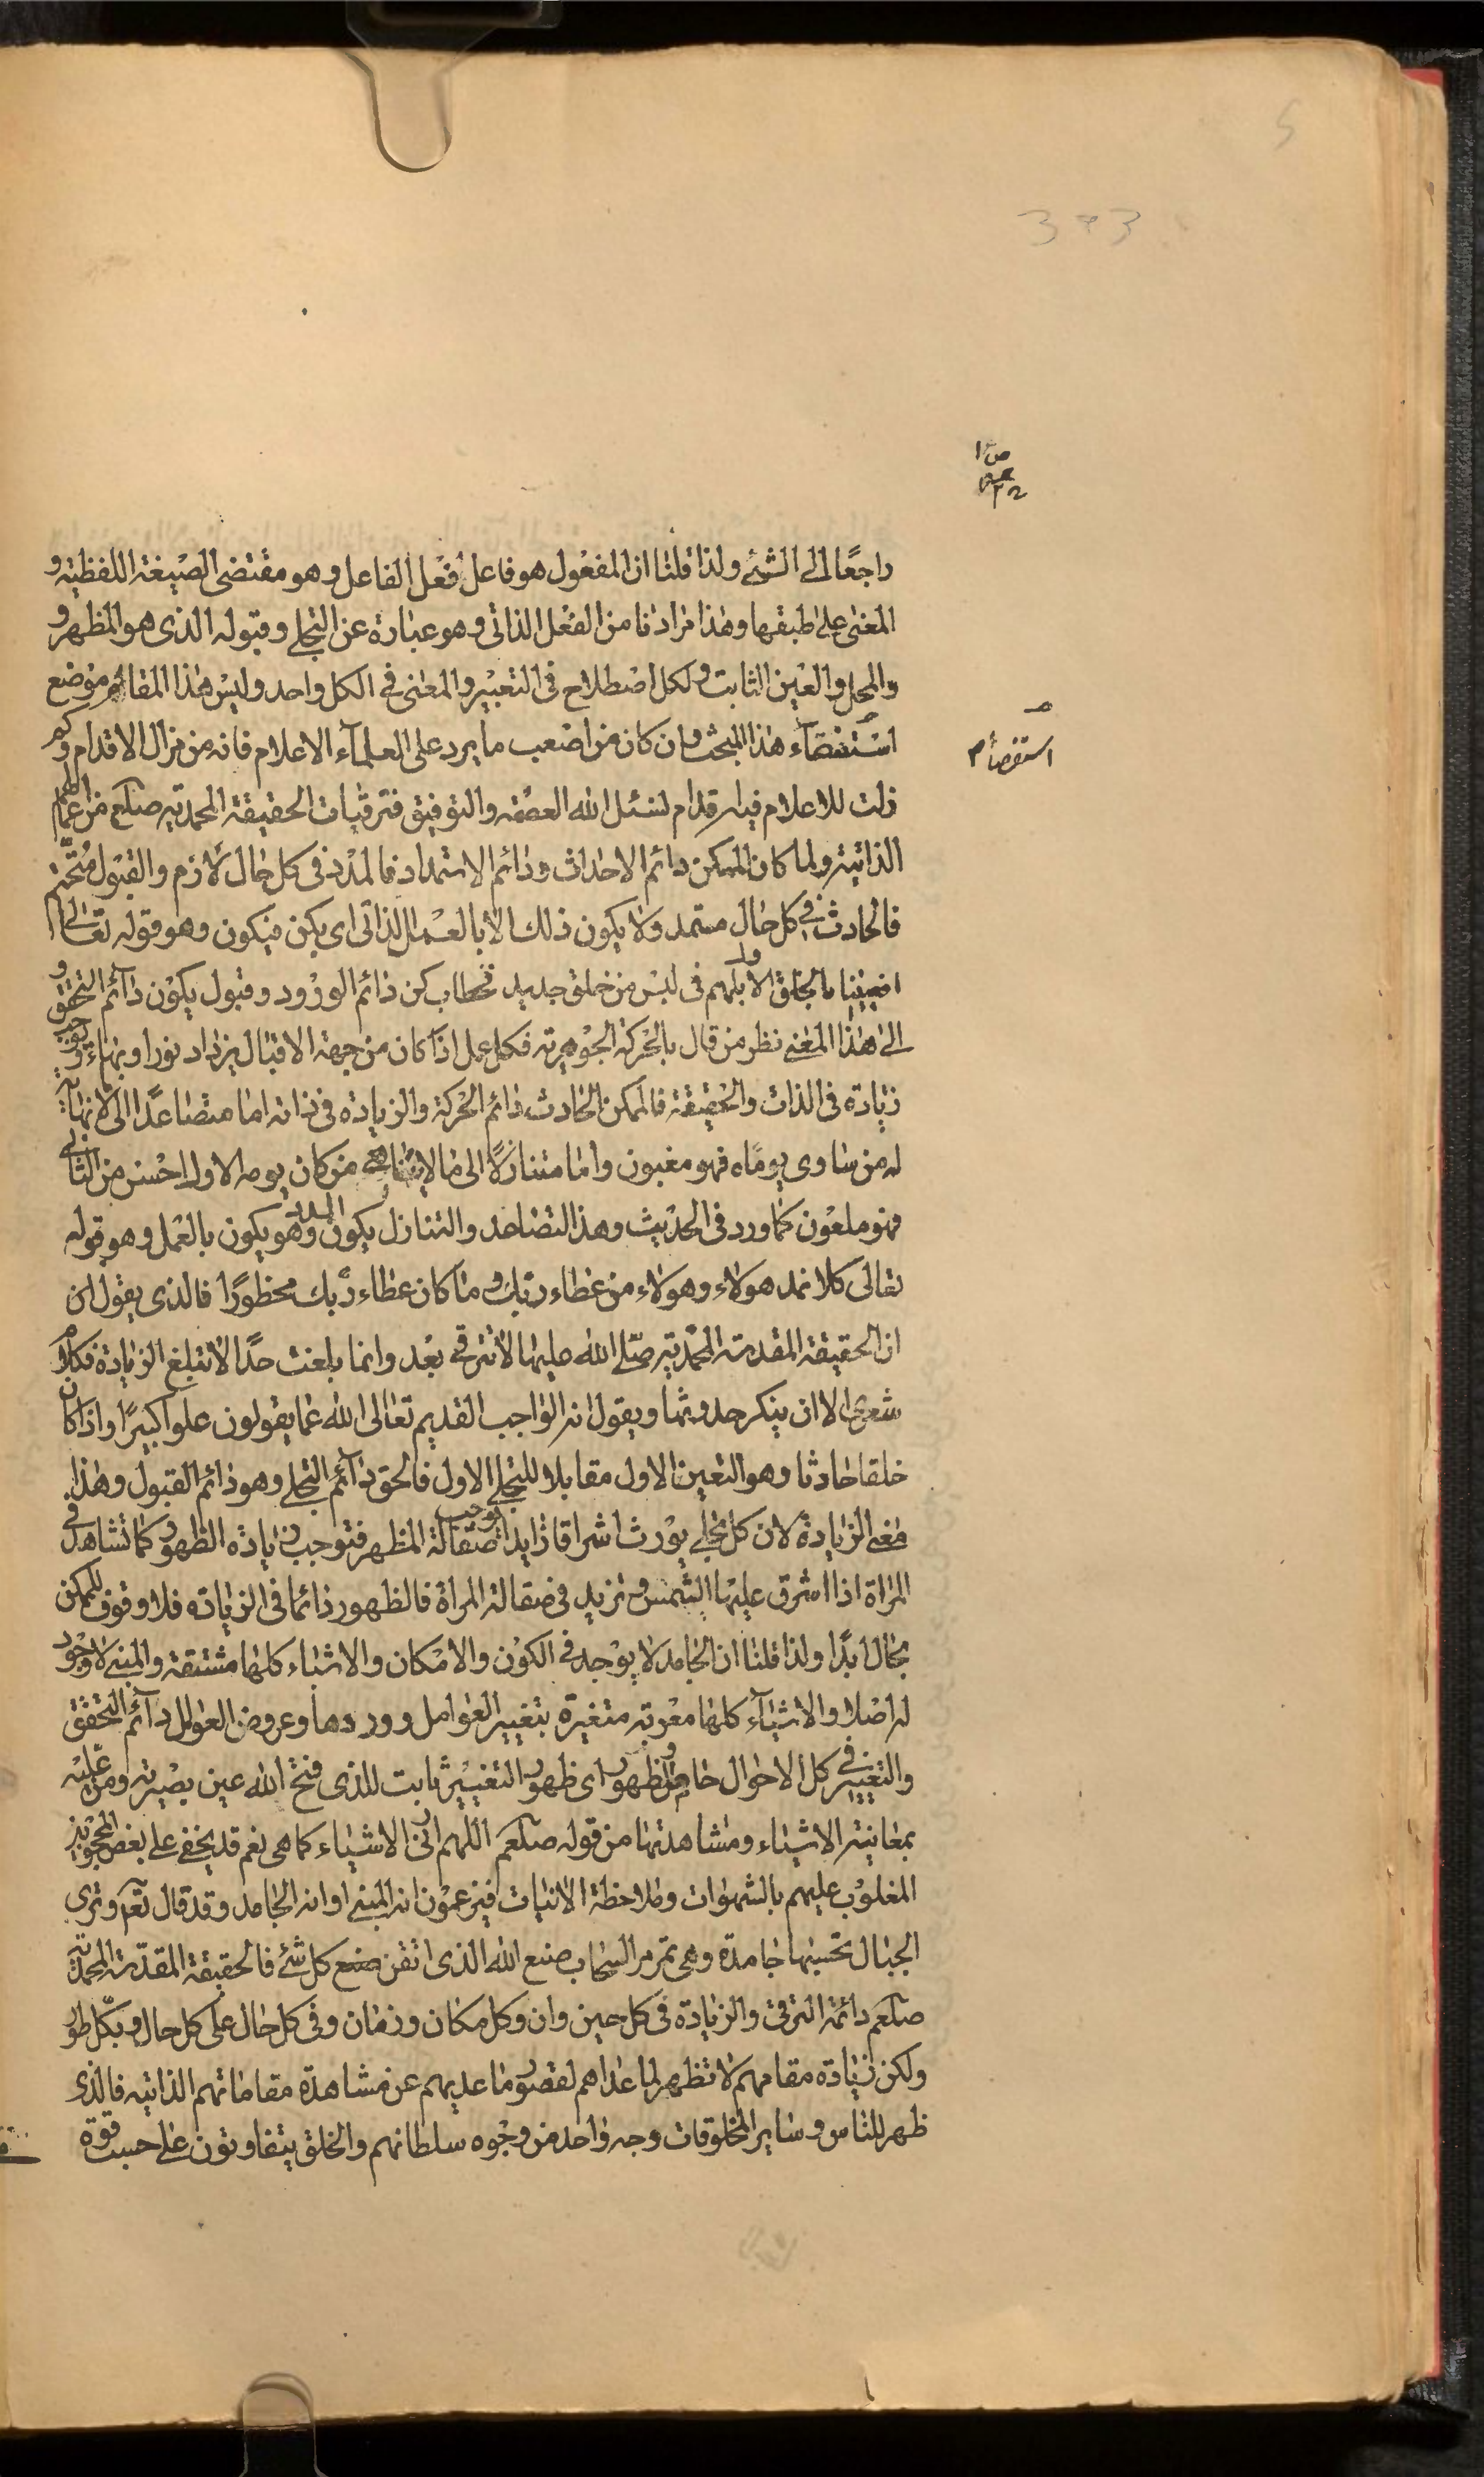 373
راجعًا الى الشئ ولذا قلنا ان المفعول هو فاعل فعل الفاعل وهو مقتضى الصيغة اللفظية و
المعنى على طبقها وهذا مرادنا من الفعل الذاتى وهو عبارة عن التجلى وقبوله الذى هو المظهر و
والمحل والعين الثابت ولكل اصطلاح فى التعبير والمعنى فى الكل واحد وليس هذا المقام موضع
استقصآء هذا المبحث وان كان من اصعب ما يرد على العلمآء الاعلام فانه من مزال الاقدام وكم
استقصاء م
زلت للاعلام فيه اقدام نسئل الله العصمة والتوفيق فترقيات الحقيقة المحمدية صلعم من اعمالها
الذاتية ولما كان الممكن دائم الاحداث ودائم الاستمداد فالمدد فى كل حال لازم والقبول متحتم
فالحادث فى كل حال مستمد ولا يكون ذلك الا بالعمل الذاتى اى يكن فيكون وهو قوله تعالى ا
افعيينا بالخلق الاول بل هم فى لبس من خلق جديد فخطاب كن دائم الورود وقبول يكون دآئم التحقق و
الى هذا المعنى نظر من قال بالحركة الجوهرية فكل عمل اذا كان من جهة الاقبال يزداد نورا وبهاء ويوجب
زيادة فى الذات والحقيقة فالممكن الحادث دائم الحركة والزيادة فى ذاته اما متصاعدًا الى لا نهاية
له من ساوى يوماه فهو مغبون واما متنازلًا الى ما لا يتناهى من كان يومه الاول احسن من الثانى
فهو ملعون كما ورد فى الحديث وهذا التصاعد والتنازل يكون بالمدد وهو يكون بالعمل وهو قوله
تعالى كلا نمد هولاء وهولاء من عطاء ربك وما كان عطاء ربك محظورًا فالذى يقول ان
ان الحقيقة المقدسة المحمدية صلى الله عليها لا تترقى بعد وانما بلغت حدًا لا تبلغ الزيادة فكلامه
شعرى الا ان ينكر حدوثها ويقول انه الواجب القديم تعالى الله عما يقولون علوا كبيرًا واذا كان
خلقا حادثا وهو التعين الاول مقابلا للتجلى الاول فالحق دآئم التجلى وهو دائم القبول وهذا
معنى الزيادة لان كل تجلى يورث اشراقا زايدا توجب صقالة المظهر فتوجب زيادة الظهور كما تشاهد فى
المراة اذا اشرق عليها الشمس تزيد فى صقالة المراة فالظهور دائما فى الزيادة فلا وقوف للممكن
بحال ابدًا ولذا قلنا ان الجامد لا يوجد فى الكون والامكان والاشياء كلها مشتقة والمبنى لا وجود
له اصلا والاشيآء كلها معربة متغيرة بتغيير العوامل وورودها وعروض العوامل دآئم التحقق
والتغيير فى كل الاحوال حاصل والظهور اى ظهور التغيير ثابت للذى فتح الله عين بصيرته ومن عليه
بمعاينة الاشياء ومشاهدتها من قوله صلعم اللهم ارنى الاشياء كما هى نعم قد يخفى على بعض المحجوبين
المغلوب عليهم بالشهوات وملاحظة الانيات فيزعمون انه المبنى او انه الجامد وقد قال تعالى وترى
الجبال تحسبها جامدة وهى تمر مر السحاب صنع الله الذى اتقن صنع كل شئ فالحقيقة المقدسة المحمدية
صلعم دائمة الترقى والزيادة فى كل حين وان وكل مكان وزمان وفى كل حال على كل حال وبكل طور
ولكن زيادة مقامهم لا تظهر لما عداهم لقصور ما عديهم عن مشاهدة مقاماتهم الذاتية فالذى
ظهر للناس وساير المخلوقات وجه واحد من وجوه سلطانهم والخلق يتفاوتون على حسب قوة